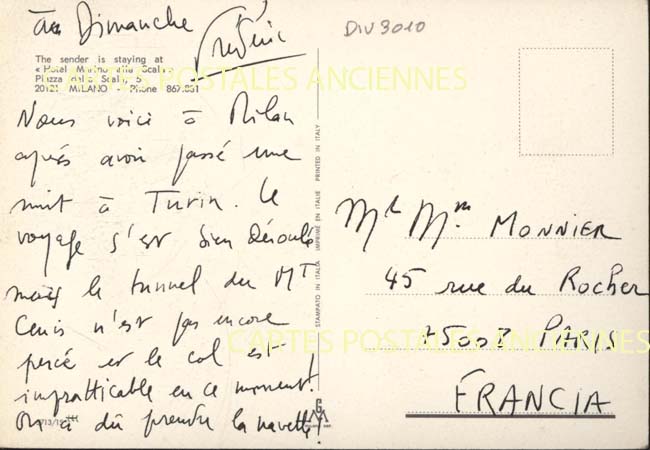 à Dimanche
Frédéric
DIV3010
The sender is staying at
« Hotel Marino alla Scala »
Piazza della Scala, 5
20121 MILANO - Phone 867.831
CARTES POSTALES ANCIENNES
Nous voici à Milan
après avoir passé une
nuit à Turin. Le
voyage s'est bien déroulé
mais le tunnel du MT
Cenis n'est pas encore
percé et le col est
impratticable en ce moment.
On a dû prendre la navette!
STAMPATO IN ITALIA IMPRIMÉ EN ITALIE PRINTED IN ITALY
Mr Mme MONNIER
45 rue du Rocher
75008 PARIS
CARTES POSTALES ANCIENNES
FRANCIA